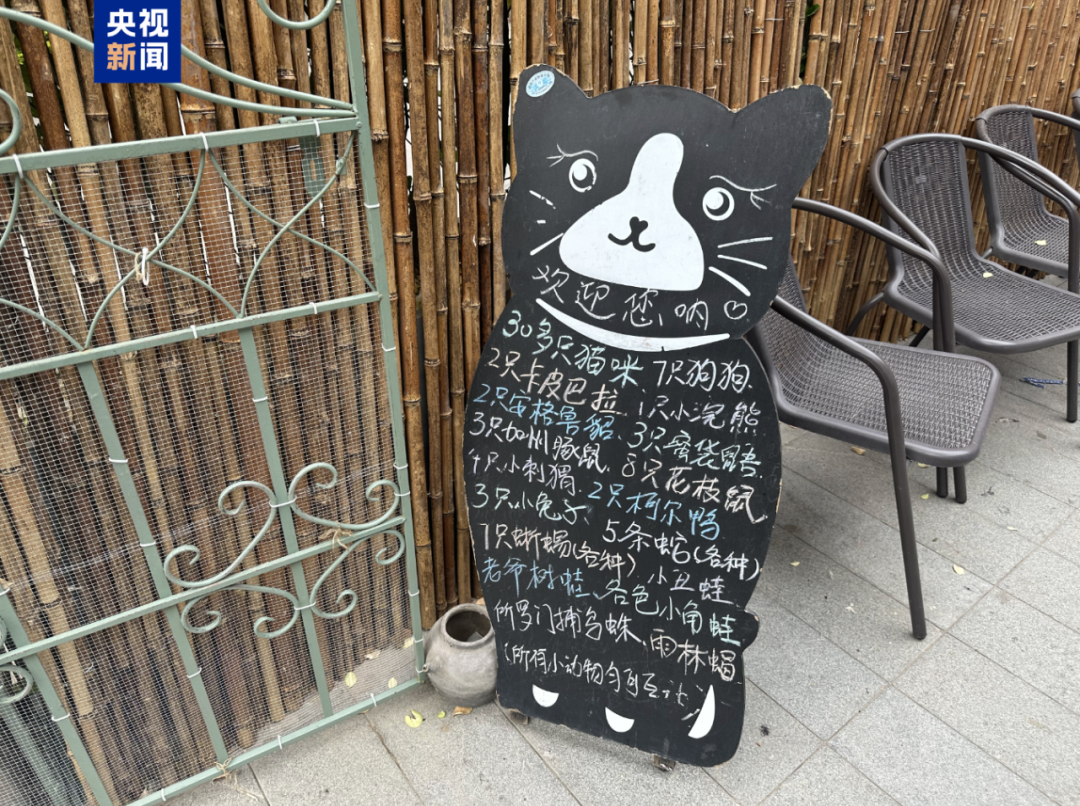 央视
新闻
欢迎您呐♡
30多只猫咪 7只狗狗、
2只卡皮巴拉 1只小浣熊
2只安格鲁貂、3只蜜袋鼯
3只加州豚鼠、8只花枝鼠、
4只小刺猬、2只柯尔鸭
3只小兔子、5条蛇(各种)
7只蜥蜴(各种)、小丑蛙
老爷树蛙、各色小角蛙
所罗门捕鸟蛛、雨林蝎
(所有小动物均可互动)